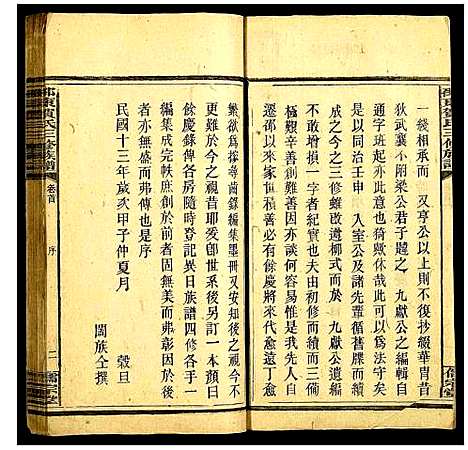 邵東賀氏三修族譜
儒宗堂
一綫相承而　又亨公以上則不復抄綴華胄昔
狄武襄不附梁公君子韙之　九獻公之編輯自
通字班起亦此意也猗歟休哉可為法守矣
是以同治壬申　入室公及諸先輩循舊牒而續
成之今之三修雖改遵柳式而於　九獻公遺編
不敢增損一字者紀實也夫由初修而續而三備
極艱辛善創難善因亦談何容易惟是我先人自
唐以來家恒積善必有餘慶將來代愈遠丁愈
繁欲為搽尋齒錄編集墨冊又安知後之視今不
更難於今之視昔耶爰卽世系後另訂一本顏曰
餘慶錄俾各房隨時登記異日族譜四修各手一
編集成完帙庶創於前者固無美而弗彰因於後
者亦無盛而弗傳也是序
民國十三年歲次甲子仲夏月　穀旦
闔族仝撰
邵東賀氏三修族譜　卷首　序　二　儒宗堂